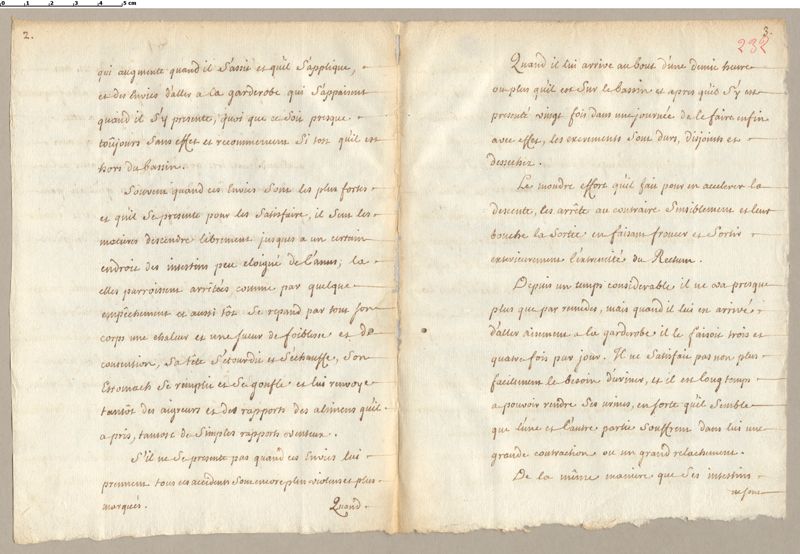 0 1 2 3 4 5 cm
2.
qui augmente quand il s'assit et qu'il s'applique,
et des Envies d'aller a la garderobe qui s'appaisent
quand il s'y presente, quoi que ce soit presque
toûjours sans effet et recommencent si tost qu'il est
hors du bassin.
Souvent quand ces Envies sont les plus fortes
et qu'il se presente pour les satisfaire, il sent les
matieres descendre librement jusques a un certain
endroit des intestins peu eloigné de l'anus; la
elles parroissent arrêtées comme par quelque
empêchement et aussi tôt se repand par tout son
corps une chaleur et une sueur de foiblesse et de
concussion, sa tête s'étourdit et s'échauffe, son
Estomach se remplit et se gonfle et lui renvoye
tantôt des aigreurs et des rapports des alimens qu'il
a pris, tantost de simples rapports venteux.
S'il ne se presente pas quand ces Envies lui
prennent tous ces accidents sont encore plus violens et plus
marqués.
Quand
3.
232
Quand il lui arrive au bout d'une demie heure
ou plus qu'il est sur le bassin et apres qu'il s'y est
presenté vingt fois dans une journée de le faire enfin
avec effet, les excremens sont durs, disjoints et
dessechez.
Le moindre effort qu'il fait pour en accelerer la
descente, les arrête au contraire sensiblement et leur
bouche la sortie en faisant froncer et sortir
exterieurement l'extremité du Rectum.
Depuis un temps considerable il ne va presque
plus que par remedes, mais quand il lui en arrivé
d'aller aisement a la garderobe il le faisoit trois et
quatre fois par jour. Il ne satisfait pas non plus
facilement le besoin d'uriner, et il est long temps
a pouvoir rendre ses urines, en sorte qu'il semble
que l'une et l'autre partie souffrent dans lui une
grande contraction ou un grand relachement.
De la même maniere que ses intestins
ne sont